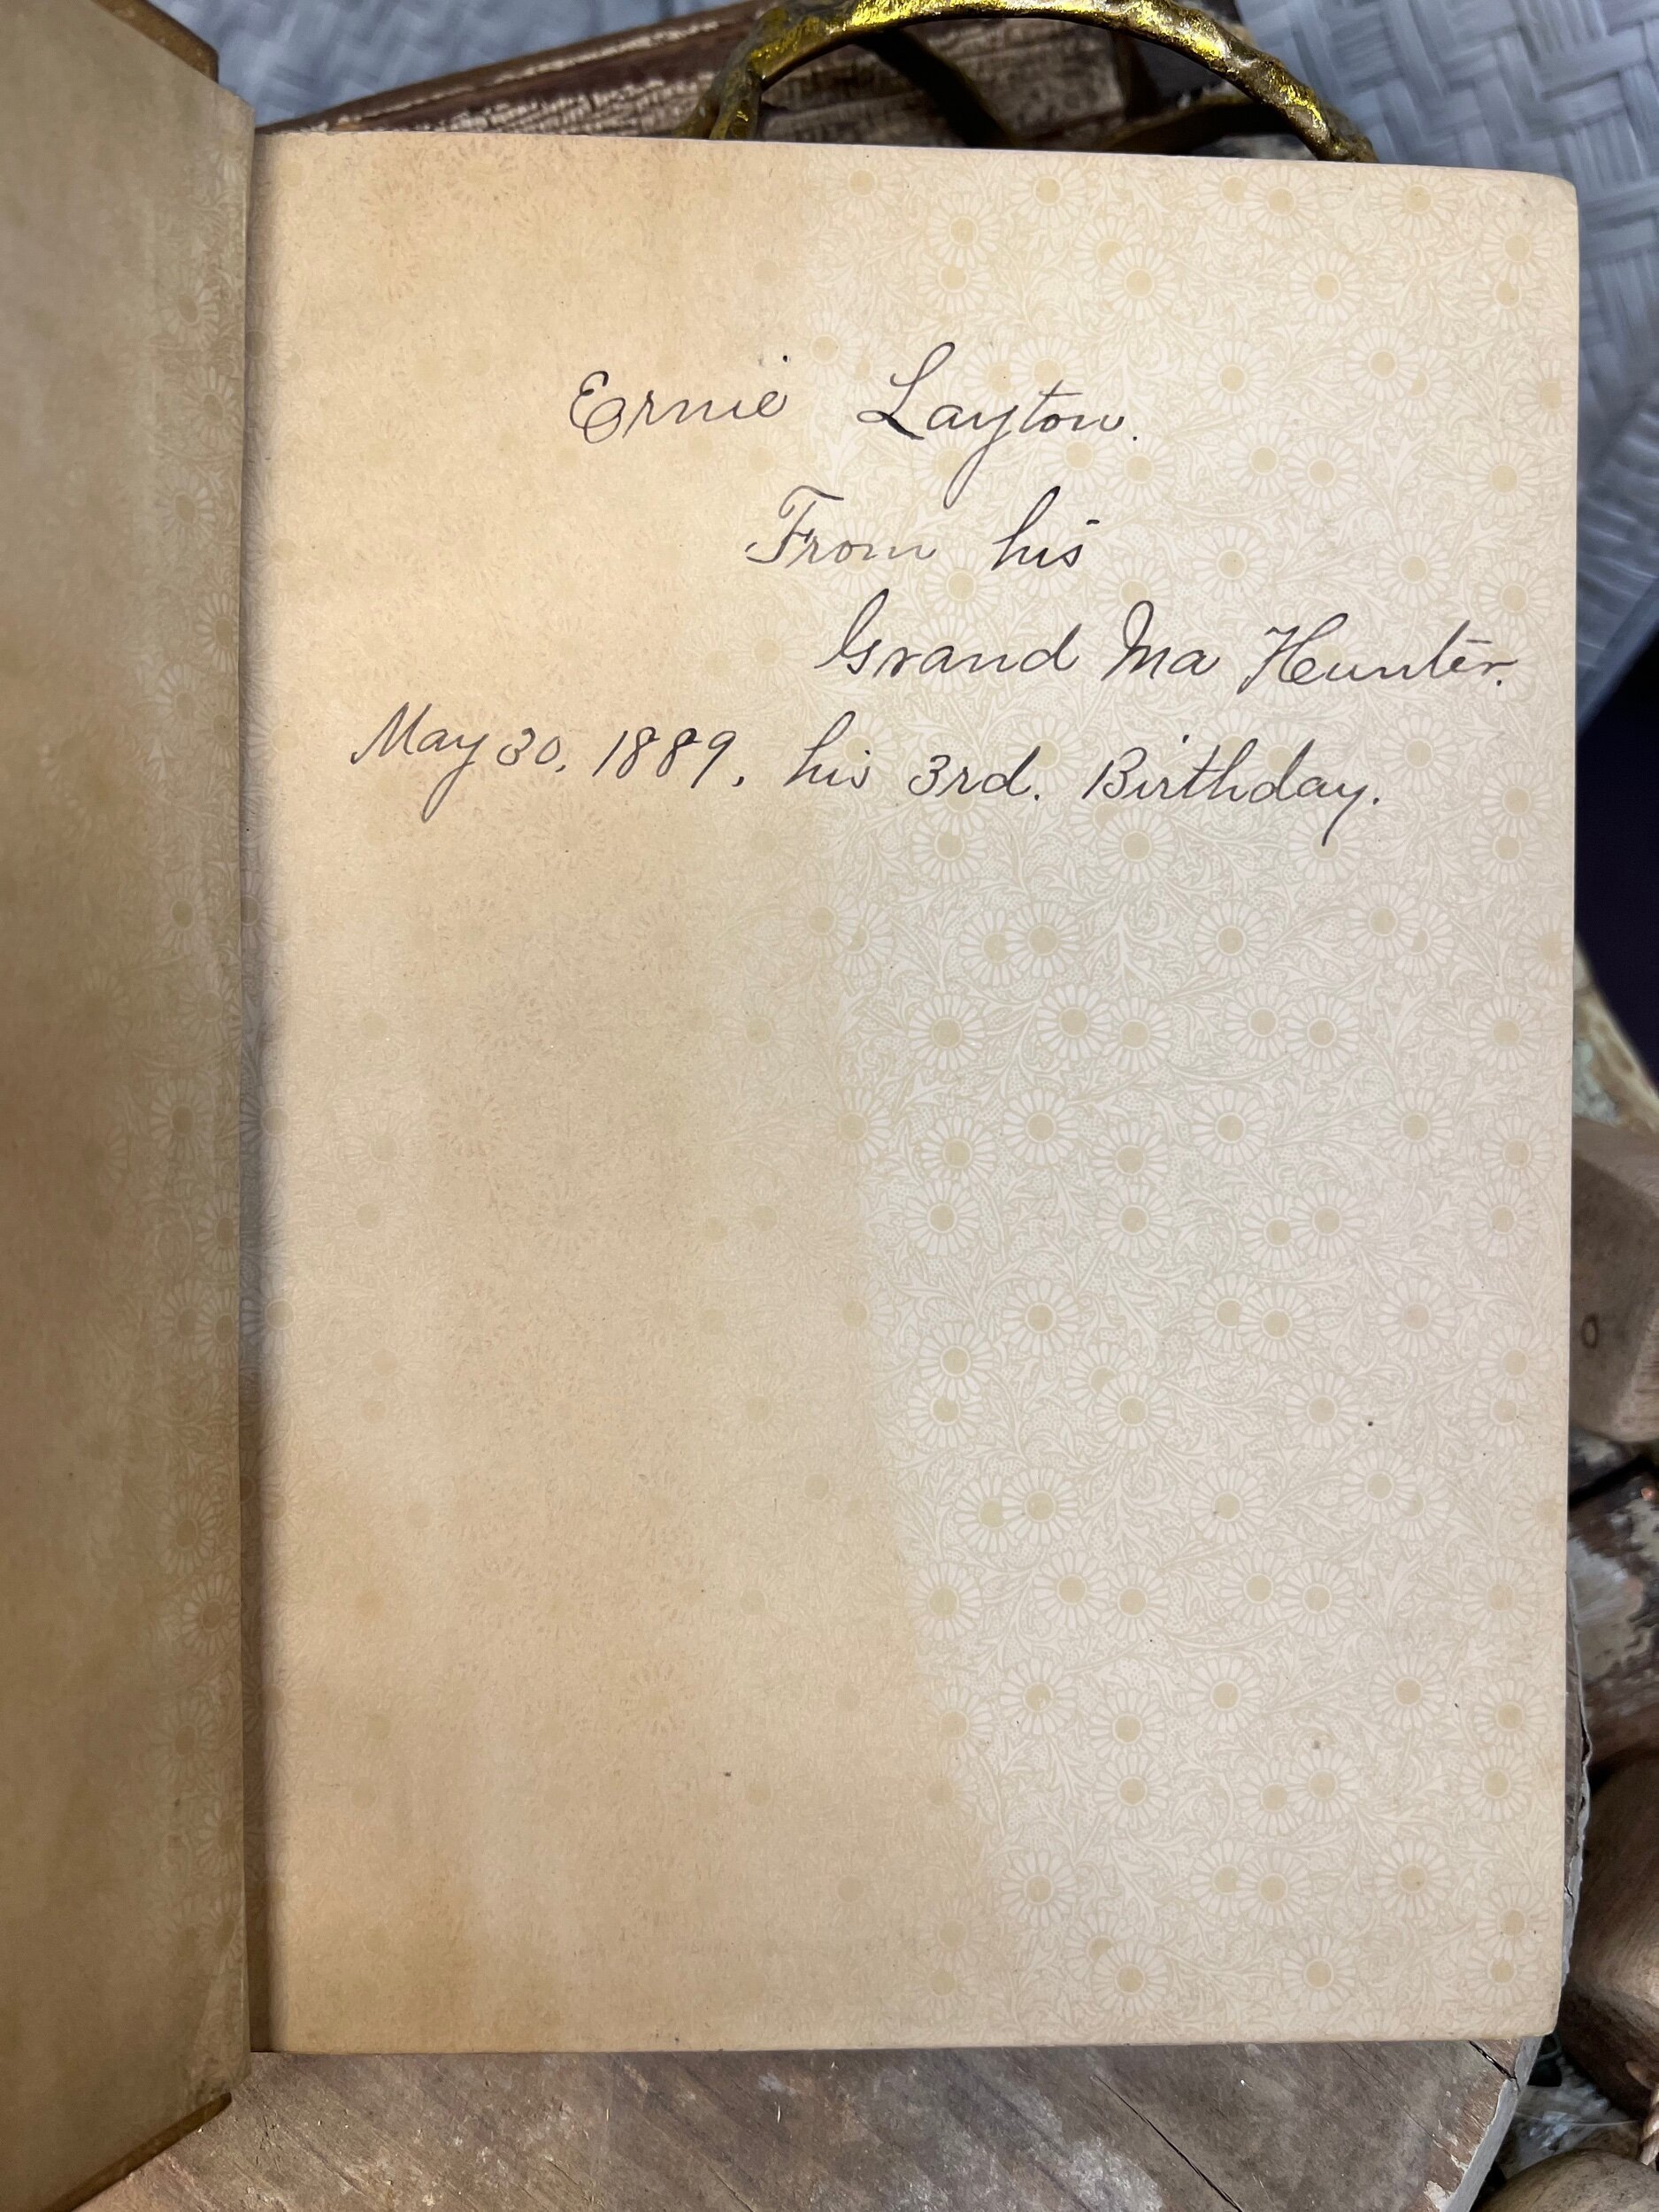 Ernie Layton.
From his
Grand Ma Hunter.
May 30, 1889, his 3rd. Birthday.